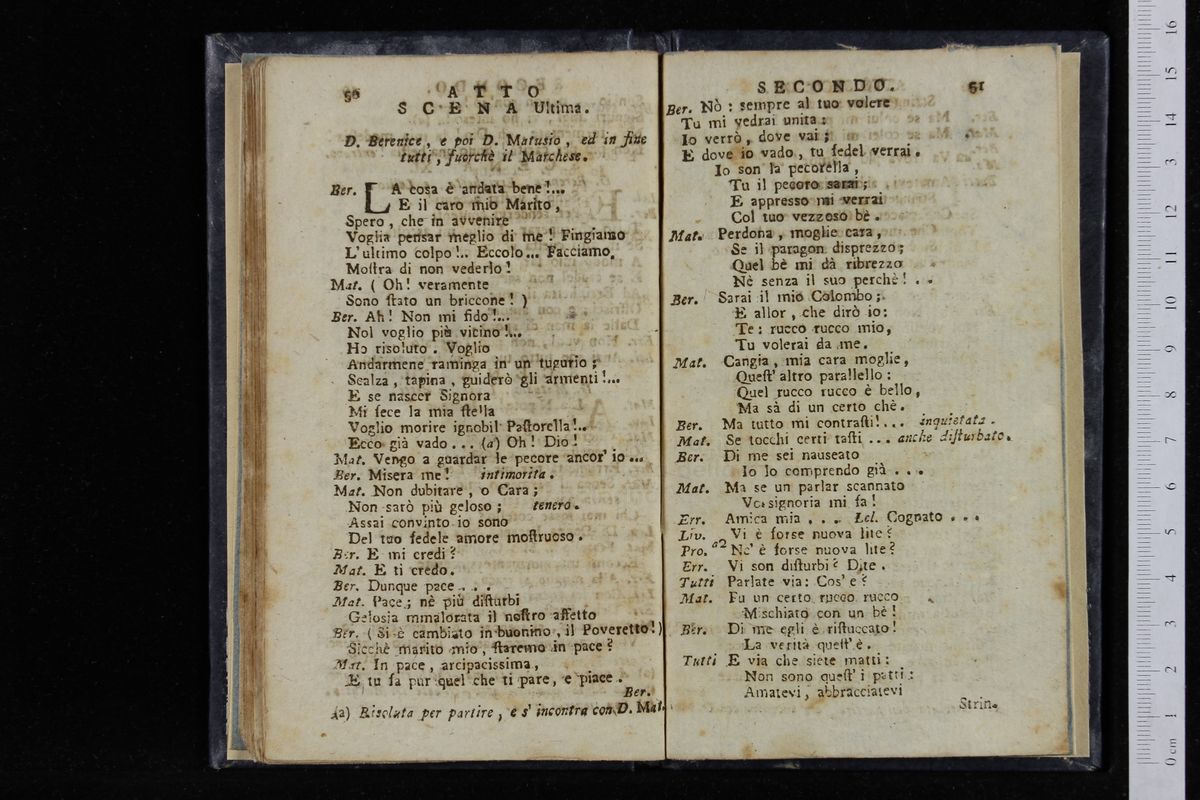 50 ATTO
SCENA Ultima.
D. Berenice, e poi D. Matusio, ed in fine
tutti, fuorchè il Marchese.
Ber. LA cosa è andata bene!...
E il caro mio Marito,
Spero, che in avvenire
Voglia pensar meglio di me! Fingiamo
L'ultimo colpo!.. Eccolo... Facciamo.
Moſtra di non vederlo!
Mat. ( Oh! veramente
Sono ſtato un briccone! )
Ber. Ah! Non mi fido!...
Nol voglio più vicino!...
Ho risoluto. Voglio
Andarmene raminga in un tugurio;
Scalza, tapina, guiderò gli armenti!...
E se nascer Signora
Mi fece la mia ſtella
Voglio morire ignobil Paſtorella!..
Ecco già vado... (a) Oh! Dio!
Mat. Vengo a guardar le pecore ancor' io...
Ber. Misera me! intimorita.
Mat. Non dubitare, o Cara;
Non sarò più geloso; tenero.
Assai convinto io sono
Del tuo fedele amore moſtruoso.
Ber. E mi credi?
Mat. E ti credo.
Ber. Dunque pace...
Mat. Pace; nè più diſturbi
Gelosia mmalorata il noſtro affetto
Ber. (Si è cambiato in buonino, il Poveretto!)
Sicchè marito mio, ſtaremo in pace?
Mat. In pace, arcipacissima,
E tu fa pur quel che ti pare, e piace.
Ber.
(a) Risoluta per partire, e s' incontra con D. Mat.
SECONDO. 51
Ber. Nò: sempre al tuo volere
Tu mi vedrai unita:
Io verrò, dove vai;
E dove io vado, tu fedel verrai.
Io son la pecorella,
Tu il pecoro sarai;
E appresso mi verrai
Col tuo vezzoso bè.
Mat. Perdona, moglie cara,
Se il paragon disprezzo;
Quel bè mi dà ribrezzo
Nè senza il suo perchè!..
Ber. Sarai il mio Colombo;
E allor, che dirò io:
Te: rucco rucco mio,
Tu volerai da me.
Mat. Cangia, mia cara moglie,
Queſt' altro parallello:
Quel rucco rucco è bello,
Ma sà di un certo chè.
Ber. Ma tutto mi contraſti!... inquietata.
Mat. Se tocchi certi taſti... anche diſturbato.
Ber. Di me sei nauseato
Io lo comprendo già...
Mat. Ma se un parlar scannato
Vossignoria mi fa!
Err. Amica mia... Lel. Cognato...
Liv. Vi è forse nuova lite?
Pro. a2 Ne' è forse nuova lite?
Err. Vi son diſturbi? Dite.
Tutti Parlate via: Cos' e?
Mat. Fu un certo rucco rucco
Mischiato con un bè!
Ber. Di me egli è riſtuccato!
La verità queſt' è.
Tutti E via che siete matti:
Non sono queſt' i patti:
Amatevi, abbracciatevi
Strin-